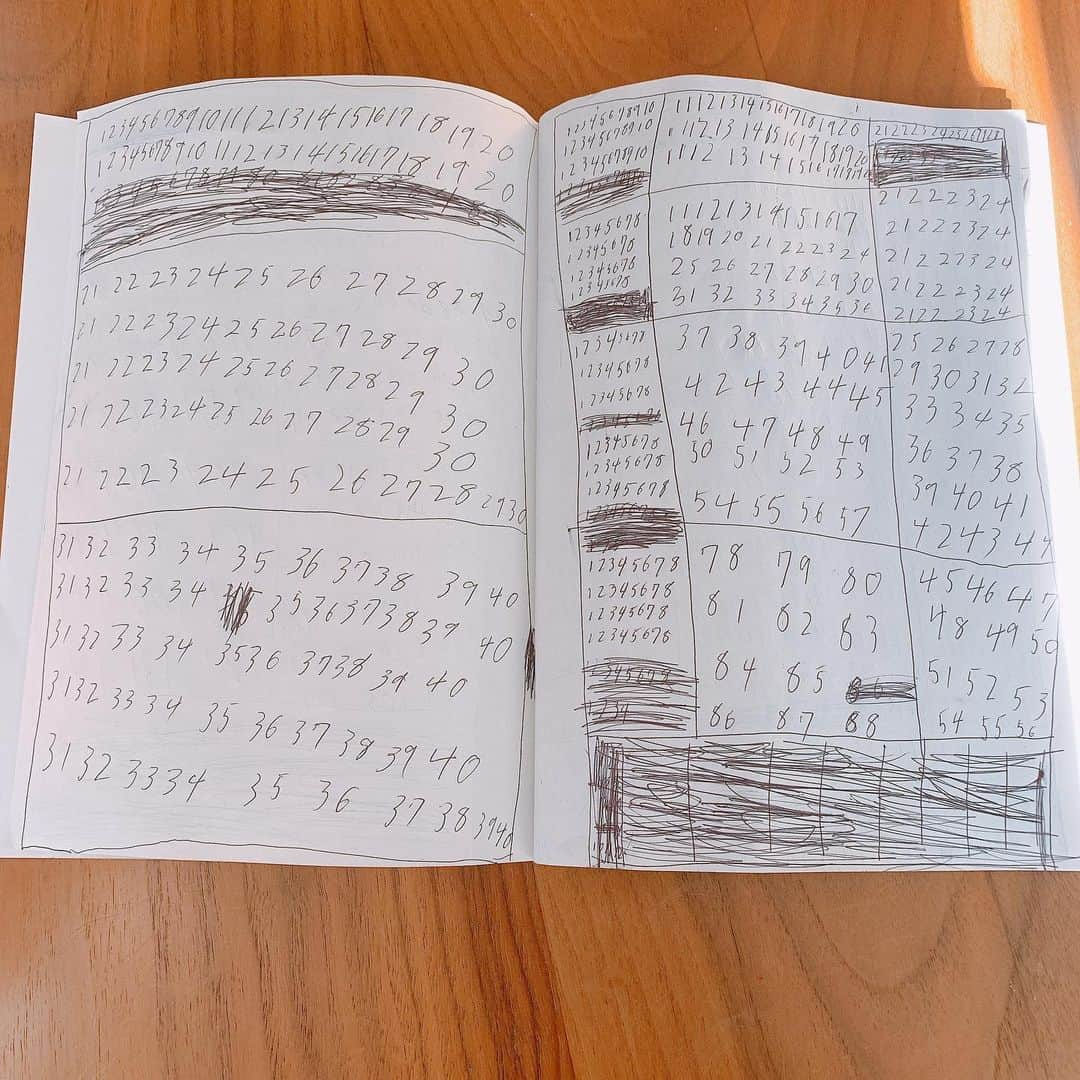 1 2 3 4 5 6 7 8 9 10 11 12 13 14 15 16 17 18 19 20
1 2 3 4 5 6 7 8 9 10 11 12 13 14 15 16 17 18 19 20
21 22 23 24 25 26 27 28 29 30
21 22 23 24 25 26 27 28 29 30
21 22 23 24 25 26 27 28 29 30
21 22 23 24 25 26 27 28 29 30
21 22 23 24 25 26 27 28 29 30
31 32 33 34 35 36 37 38 39 40
31 32 33 34 35 36 37 38 39 40
31 32 33 34 35 36 37 38 39 40
31 32 33 34 35 36 37 38 39 40
31 32 33 34 35 36 37 38 39 40
1 2 3 4 5 6 7 8 9 10
1 2 3 4 5 6 7 8 9 10
1 2 3 4 5 6 7 8 9 10
1 2 3 4 5 6 7 8
1 2 3 4 5 6 7 8
1 2 3 4 5 6 7 8
1 2 3 4 5 6 7 8
1 2 3 4 5 6 7 8
1 2 3 4 5 6 7 8
1 2 3 4 5 6 7 8
1 2 3 4 5 6 7 8
1 2 3 4 5 6 7 8
1 2 3 4 5 6 7 8
1 2 3 4 5 6 7 8
1 2 3 4 5 6 7 8
1 2 3 4 5 6 7 8
1 2 3 4 5 6 7 8
11 12 13 14 15 16 17 18 19 20
11 12 13 14 15 16 17 18 19 20
11 12 13 14 15 16 17 18 19 20
11 12 13 14 15 16 17
18 19 20 21 22 23 24
25 26 27 28 29 30
31 32 33 34 35 36
37 38 39 40 41
42 43 44 45
46 47 48 49
50 51 52 53
54 55 56 57
78 79 80
81 82 83
84 85
86 87 88
21 22 23 24 25 26 27 28
21 22 23 24
21 22 23 24
21 22 23 24
21 22 23 24
21 22 23 24
25 26 27 28
29 30 31 32
33 34 35
36 37 38
39 40 41
42 43 44
45 46 47
48 49 50
51 52 53
54 55 56